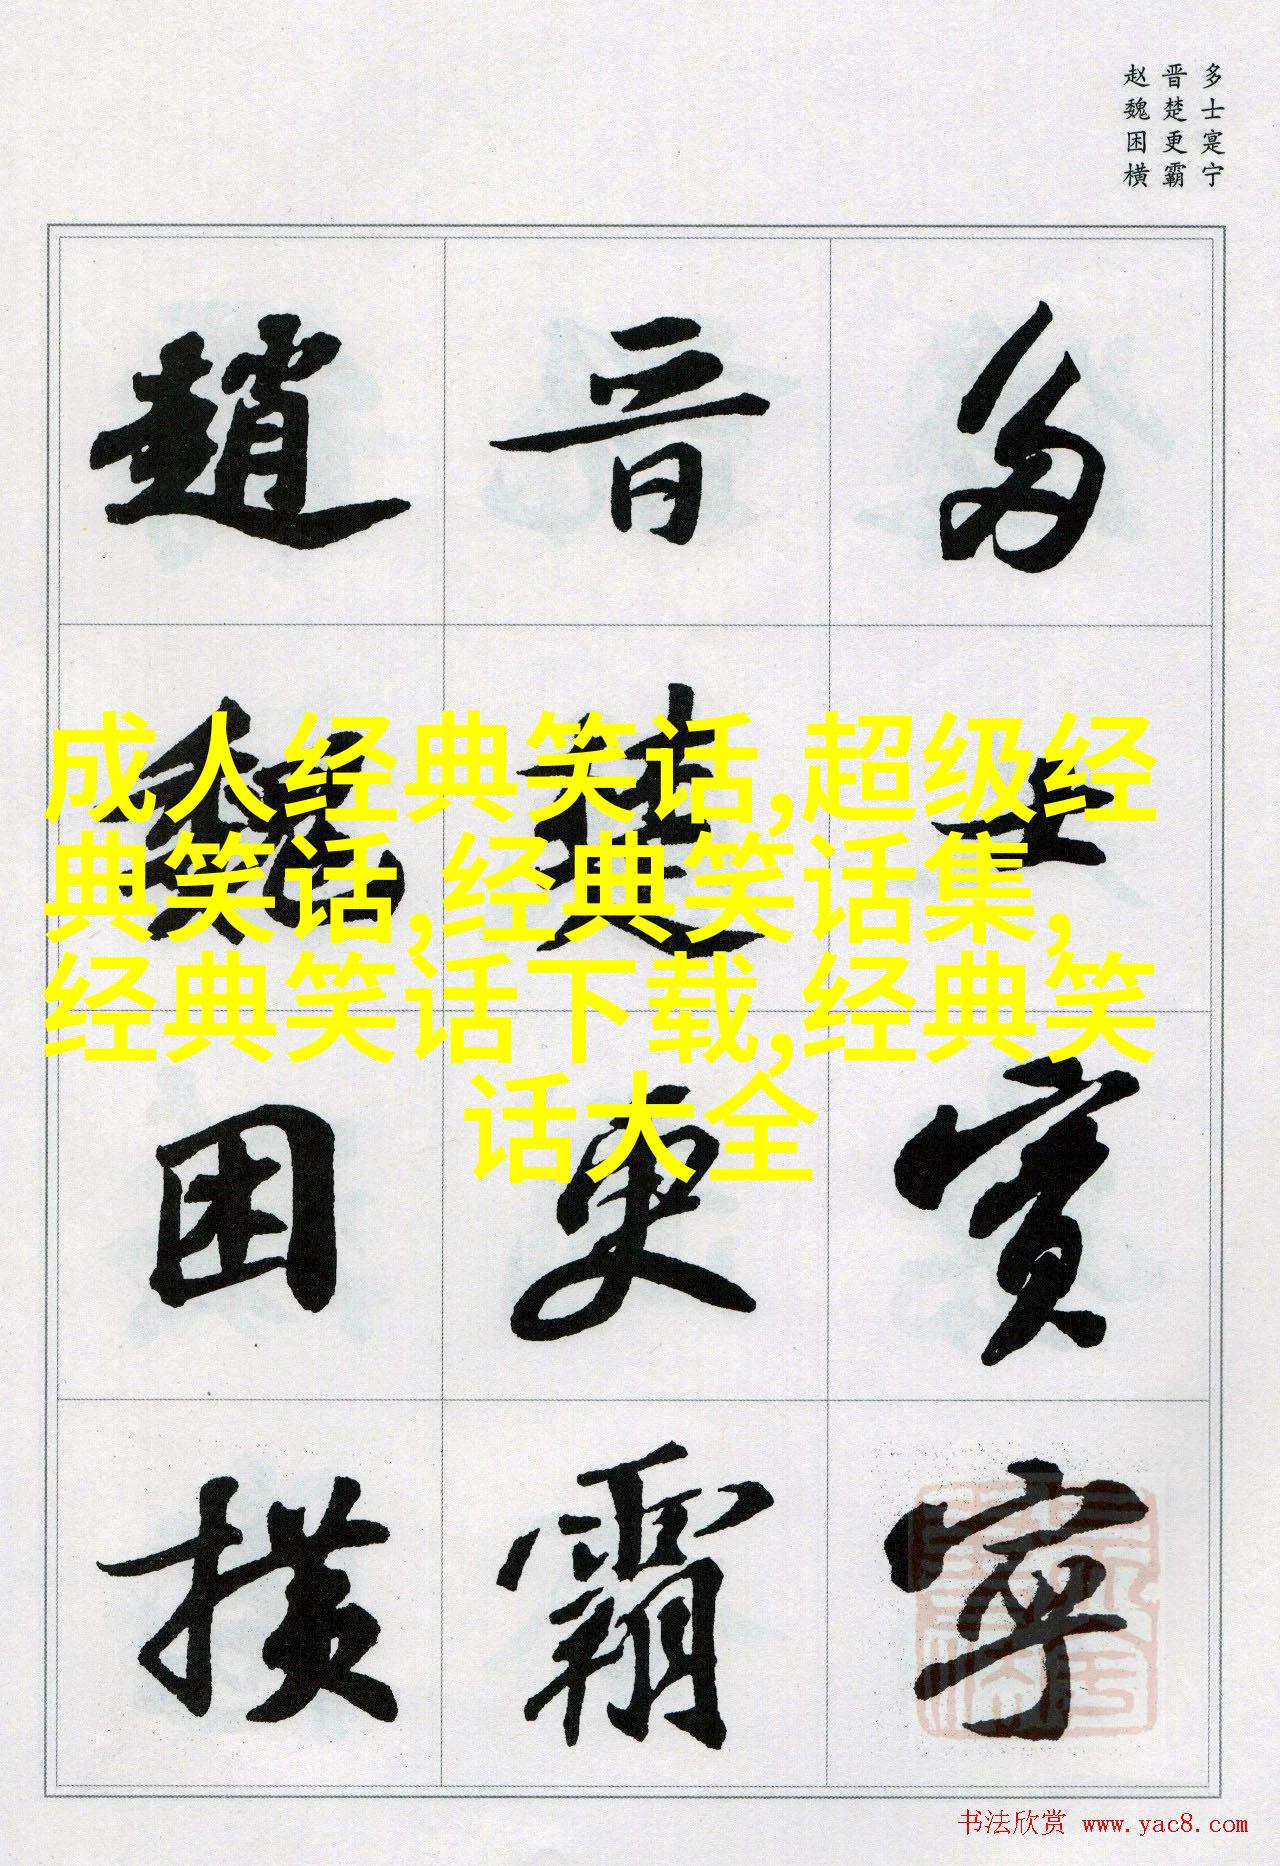 多士寔宁
晋楚更霸
赵魏困横
多士寔寧
晋楚更霸
趙魏困横
成人经典笑话,超级经
典笑话,经典笑话集,
经典笑话下载,经典笑
话大全
书法欣赏 www.yac8.com